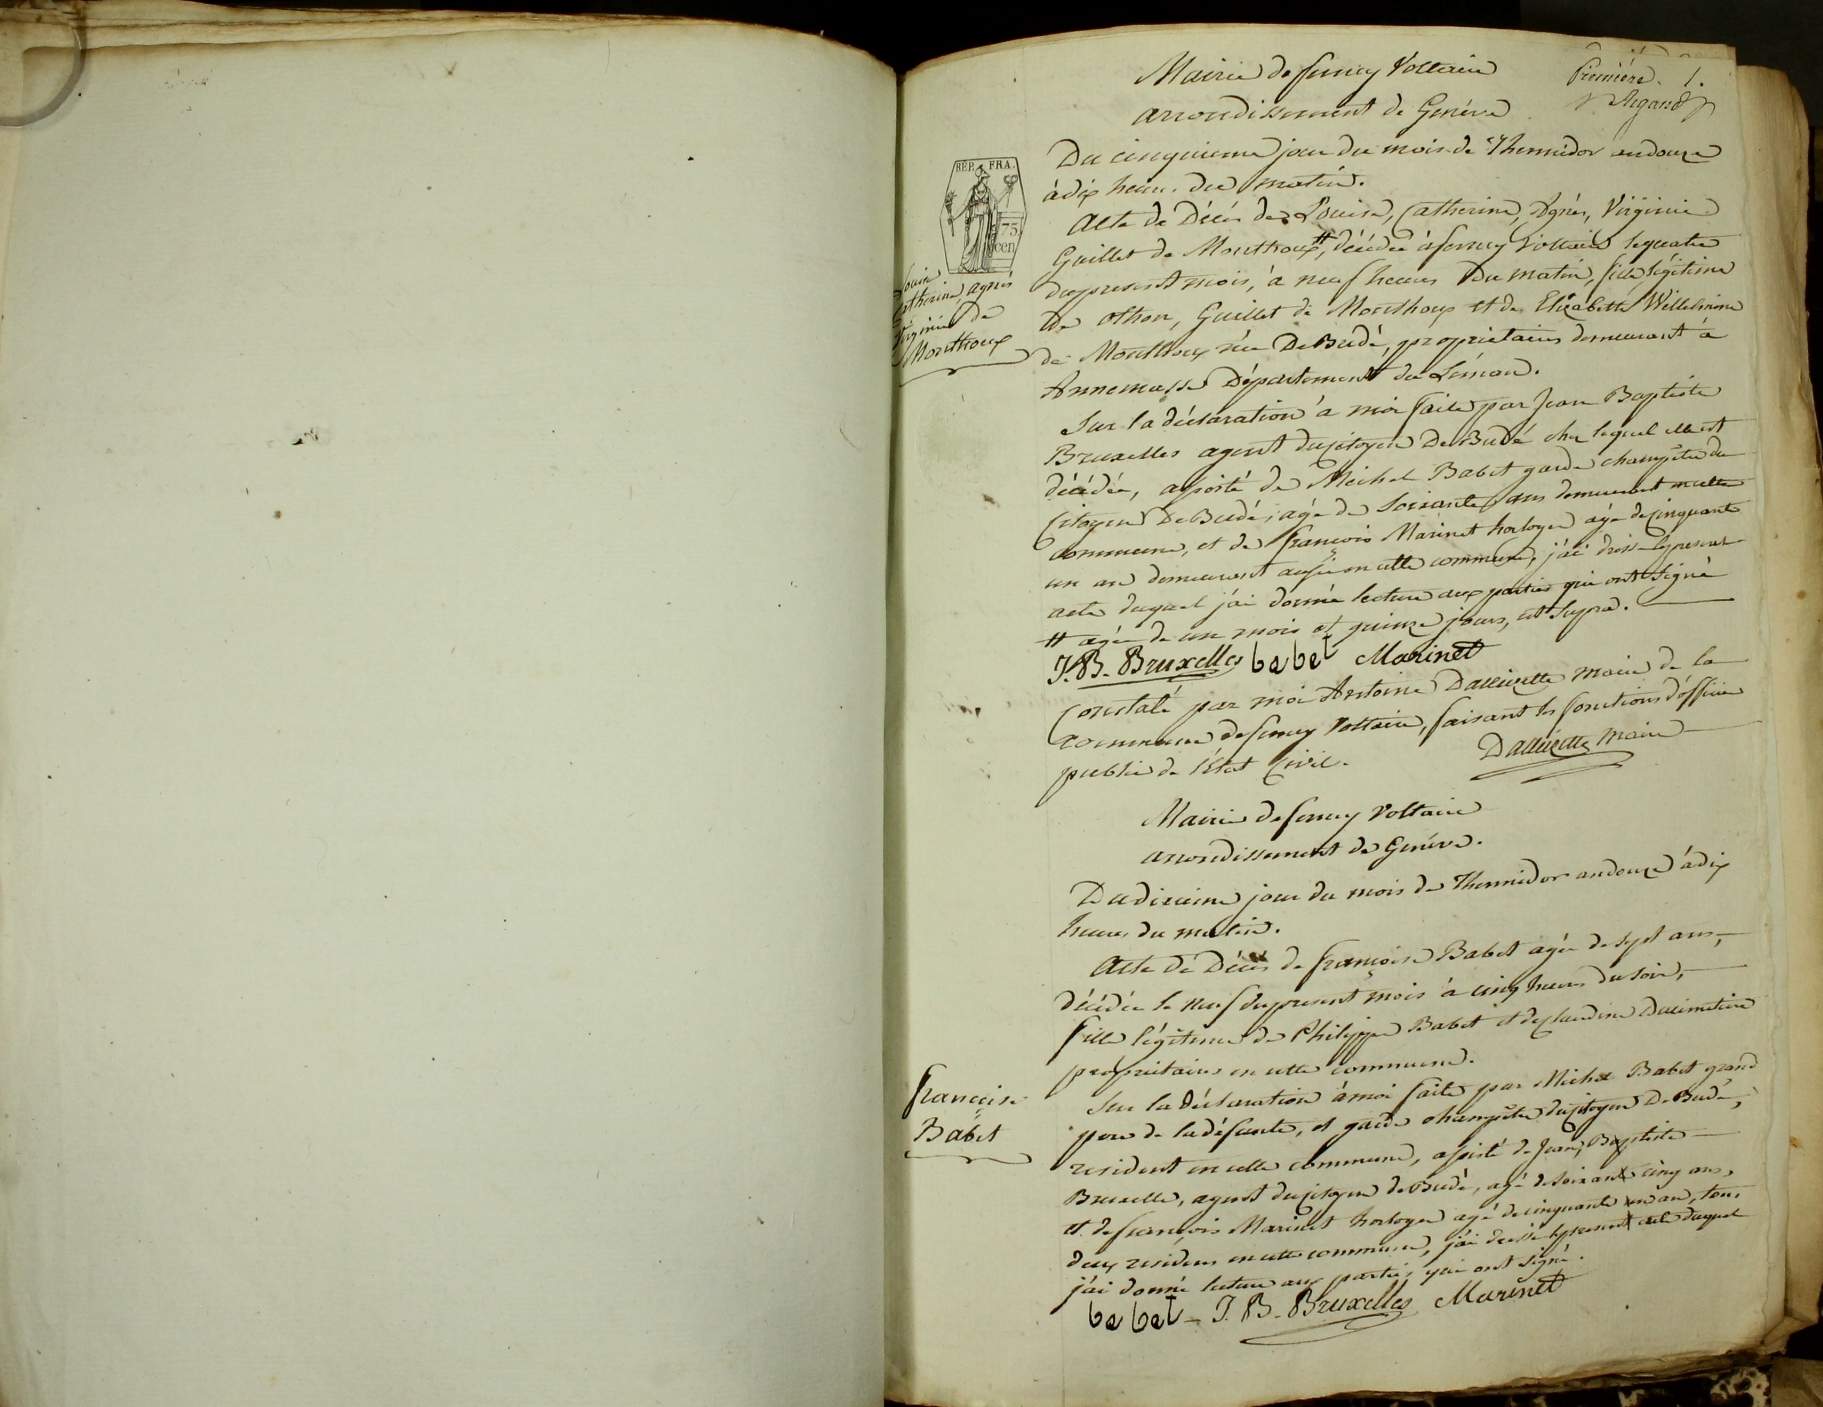 Mairie de ferney Voltaire
Première. 1.
arrondissement de Genève
Regard
Du cinquieme jour du mois de Thermidor an douze
à dix heures du matin.
REP. FRA.
75
cen
Acte de Décès de Louise, Catherine, Agnès, Virginie
Guillet de Monthoux #, décédée à ferney Voltaire le quatre
du present mois, à neuf heures Du matin, fille légitime
de othon, Guillet de Monthoux et de Elizabette Willelmine
de Monthoux née De Budé, proprietaires demeurant à
Annemasse Département du Léman.
Louise
Catherine, agnès
Virginie de
Monthoux
Sur la déclaration à moi faite par Jean Baptiste
Bruxelles agent du citoyen De Budé chez lequel elle est
décédée, assisté de Michel Babet garde champêtre du
Citoyen De Budé, agé de soixante ans demeurant en cette
commune, et de françois Marinet horloger agé de cinquante
un an demeurant aussi en cette commune, j'ai dressé le present
acte duquel j'ai donné lecture aux parties qui ont signé
# agée de un mois et quinze jours, ut supra.
J. B. Bruxelles babet Marinet
Constaté par moi Antoine Dallizette maire de la
commune de ferney Voltaire, faisant les fonctions d'officier
public de l'état Civil. Dallizette maire
Mairie de ferney Voltaire
arrondissement de Genève.
Du dixieme jour du mois de Thermidor an douze à dix
heures du matin.
Acte de Décès de françoise Babet agée de sept ans,
décédée le neuf du present mois à cinq heures du soir,
fille légitime de Philippe Babet et de claudine
proprietaires en cette commune.
françoise
Babet
Sur la déclaration à moi faite par Michel Babet grand
pere de la défunte, et garde champêtre du citoyen De Budé,
resident en cette commune, assisté de Jean, Baptiste
Bruxelle, agent du citoyen de Budé, agé de soixante cinq ans,
et de françois Marinet horloger agé de cinquante un an, tous
deux residens en cette commune, j'ai dressé le present acte duquel
j'ai donné lecture aux parties qui ont signé.
babet - J. B. Bruxelles Marinet